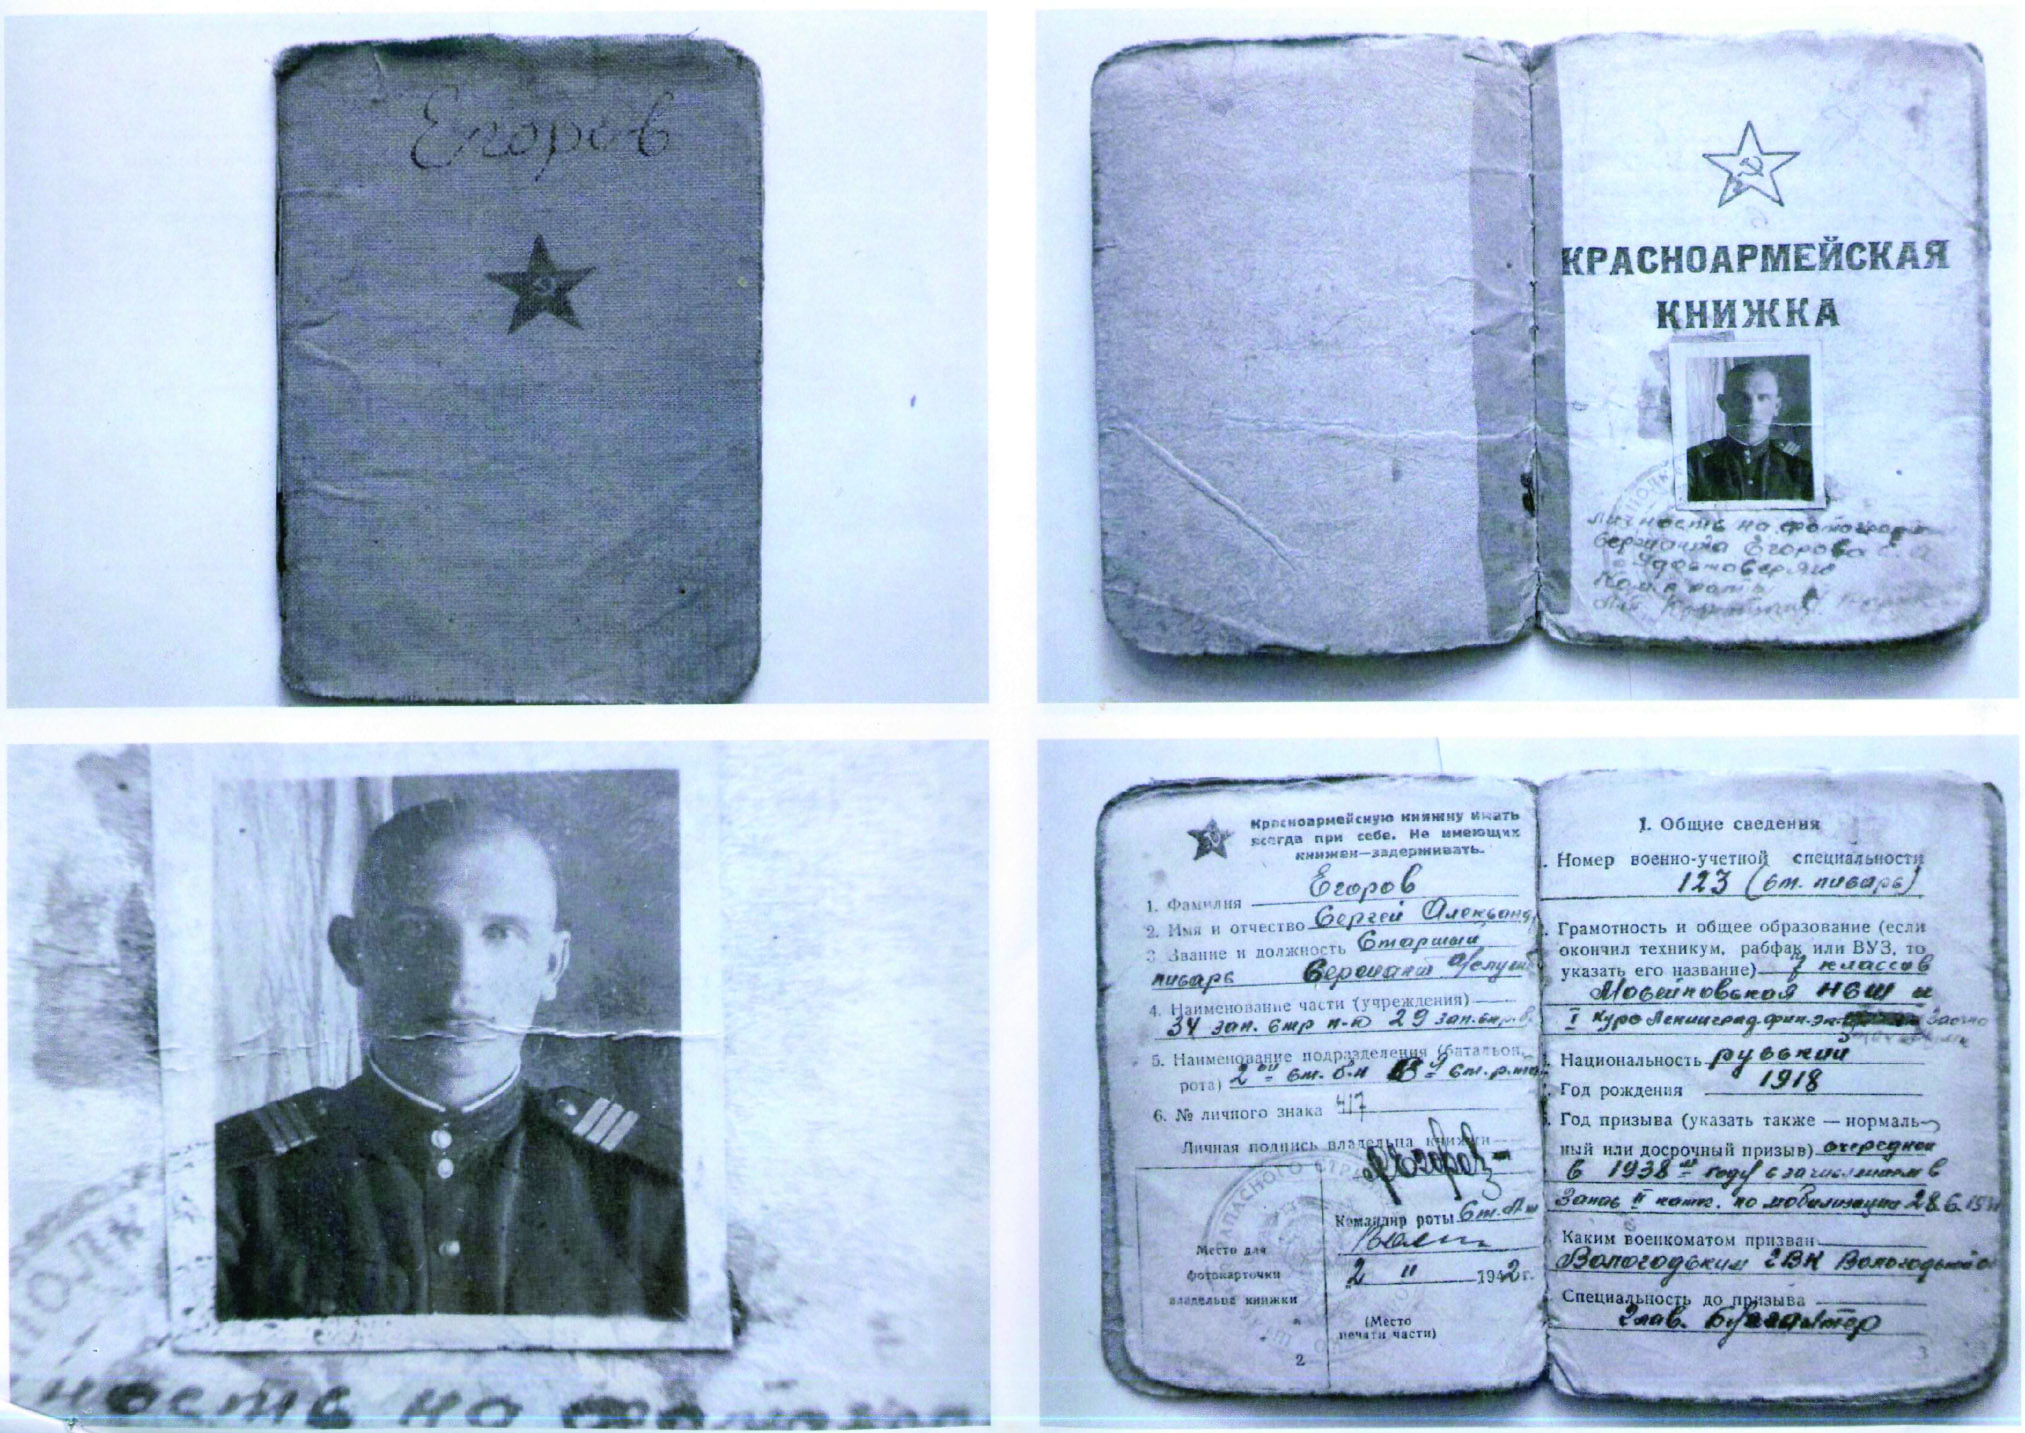 Егоров
КРАСНОАРМЕЙСКАЯ
КНИЖКА
Личность на фотограф
Сержанта Егорова С. А.
Удостоверяю
Ком. роты
ность на фотогра
Красноармейскую книжку иметь
всегда при себе. Не имеющих
книжек—задерживать.
1. Фамилия Егоров
2. Имя и отчество Сергей Александ
3. Звание и должность Старший
писарь Сержант
4. Наименование части (учреждения)
34 зап. стр п-к 29 зап. стр.
5. Наименование подразделения (батальон,
рота) 2ой ст. б-н ст. рота
6. № личного знака 417
Личная подпись владельца книжки
Егоров
ЗАПАСНОГО СТР
Командир роты Ст.
2 " 1942 г.
Место для
фотокарточки
владельца книжки
(Место
печати части)
2
1. Общие сведения
Номер военно-учетной специальности
123 (ст. писарь)
Грамотность и общее образование (если
окончил техникум, рабфак или ВУЗ, то
указать его название) 7 классов
НСШ и
I курс Ленинград. фин-эк. Заочно
Национальность русский
Год рождения 1918
Год призыва (указать также — нормаль-
ный или досрочный призыв) очередной
в 1938 м году с зачислением в
Запас II катег. по мобилизации 28.6.1941
Каким военкоматом призван
Вологодским ГВК Вологодской о
Специальность до призыва
Глав. бухгалтер
3
ПОЛК